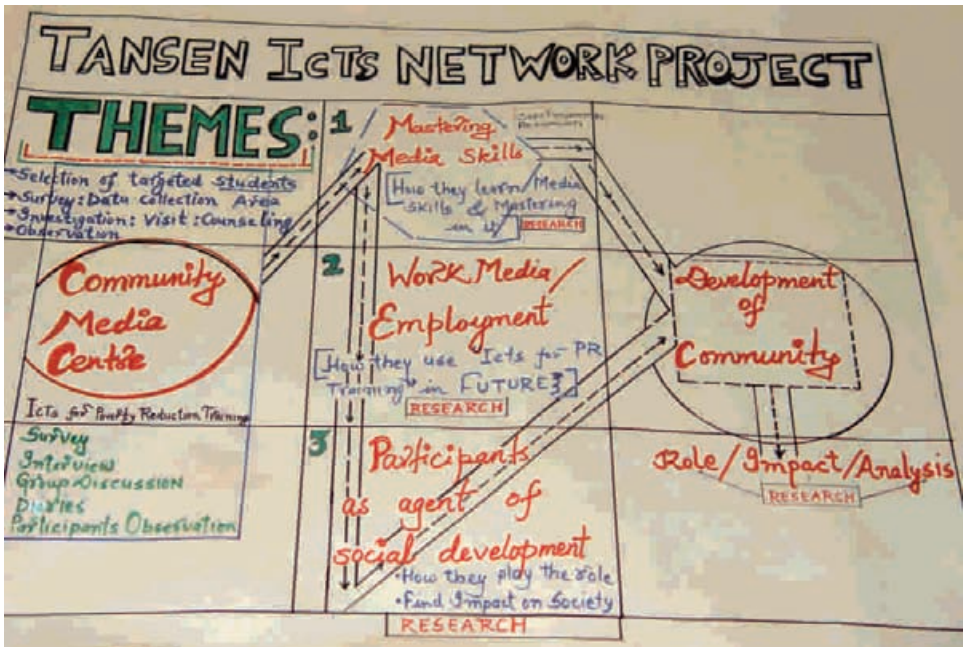 TANSEN ICTS NETWORK PROJECT
THEMES:
Selection of targeted students
Survey: Data collection Area
Investigation: Visit: Counseling
Observation
Community
Media
Centre
Icts for Poverty Reduction Training
Survey
Interview
Group Discussion
Diaries
Participants Observation
1
Mastering
Media Skills
[How they learn/Media
skills & Mastering
in it]
RESEARCH
2
Work Media/
Employment
[How they use "Icts for PR
Training" in FUTURE?]
RESEARCH
3
Participants
as agent of
social development
•How they play the role
•Find Impact on Society
RESEARCH
Development
of
Community
Role/Impact/Analysis
RESEARCH